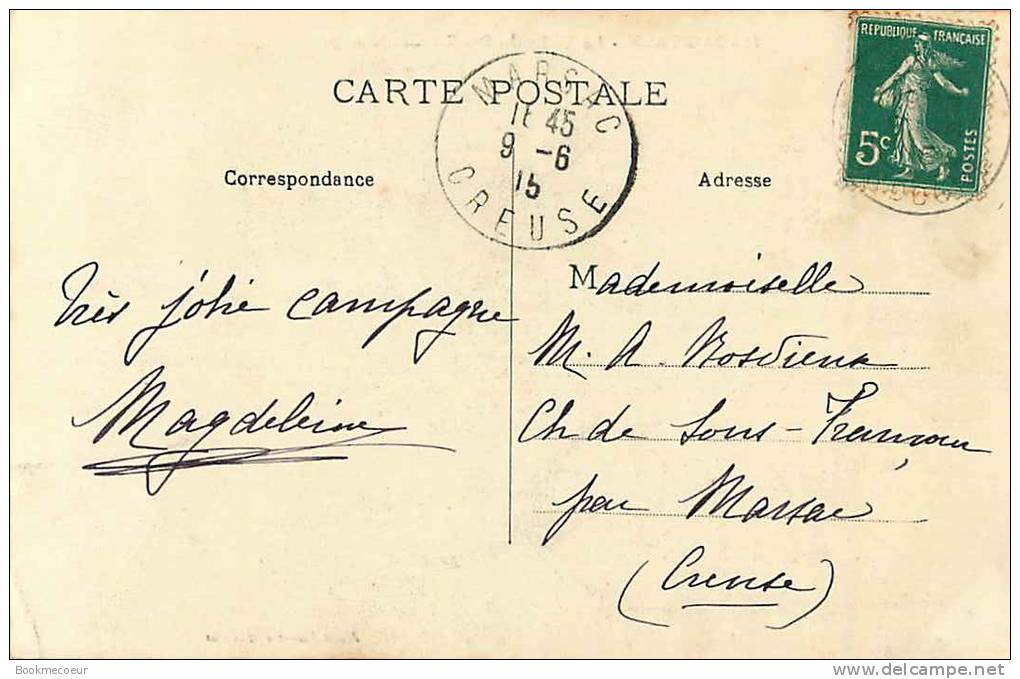 CARTE POSTALE
MARSAC
1 45
9 -6
15
CREUSE
REPUBLIQUE FRANÇAISE
5c
POSTES
Correspondance
Adresse
Très jolie campagne
Magdeleine
Mademoiselle
M. A.
Ch de Sous-
par Marsac
(Creuse)
Bookmecoeur
http://www.delcampe.net